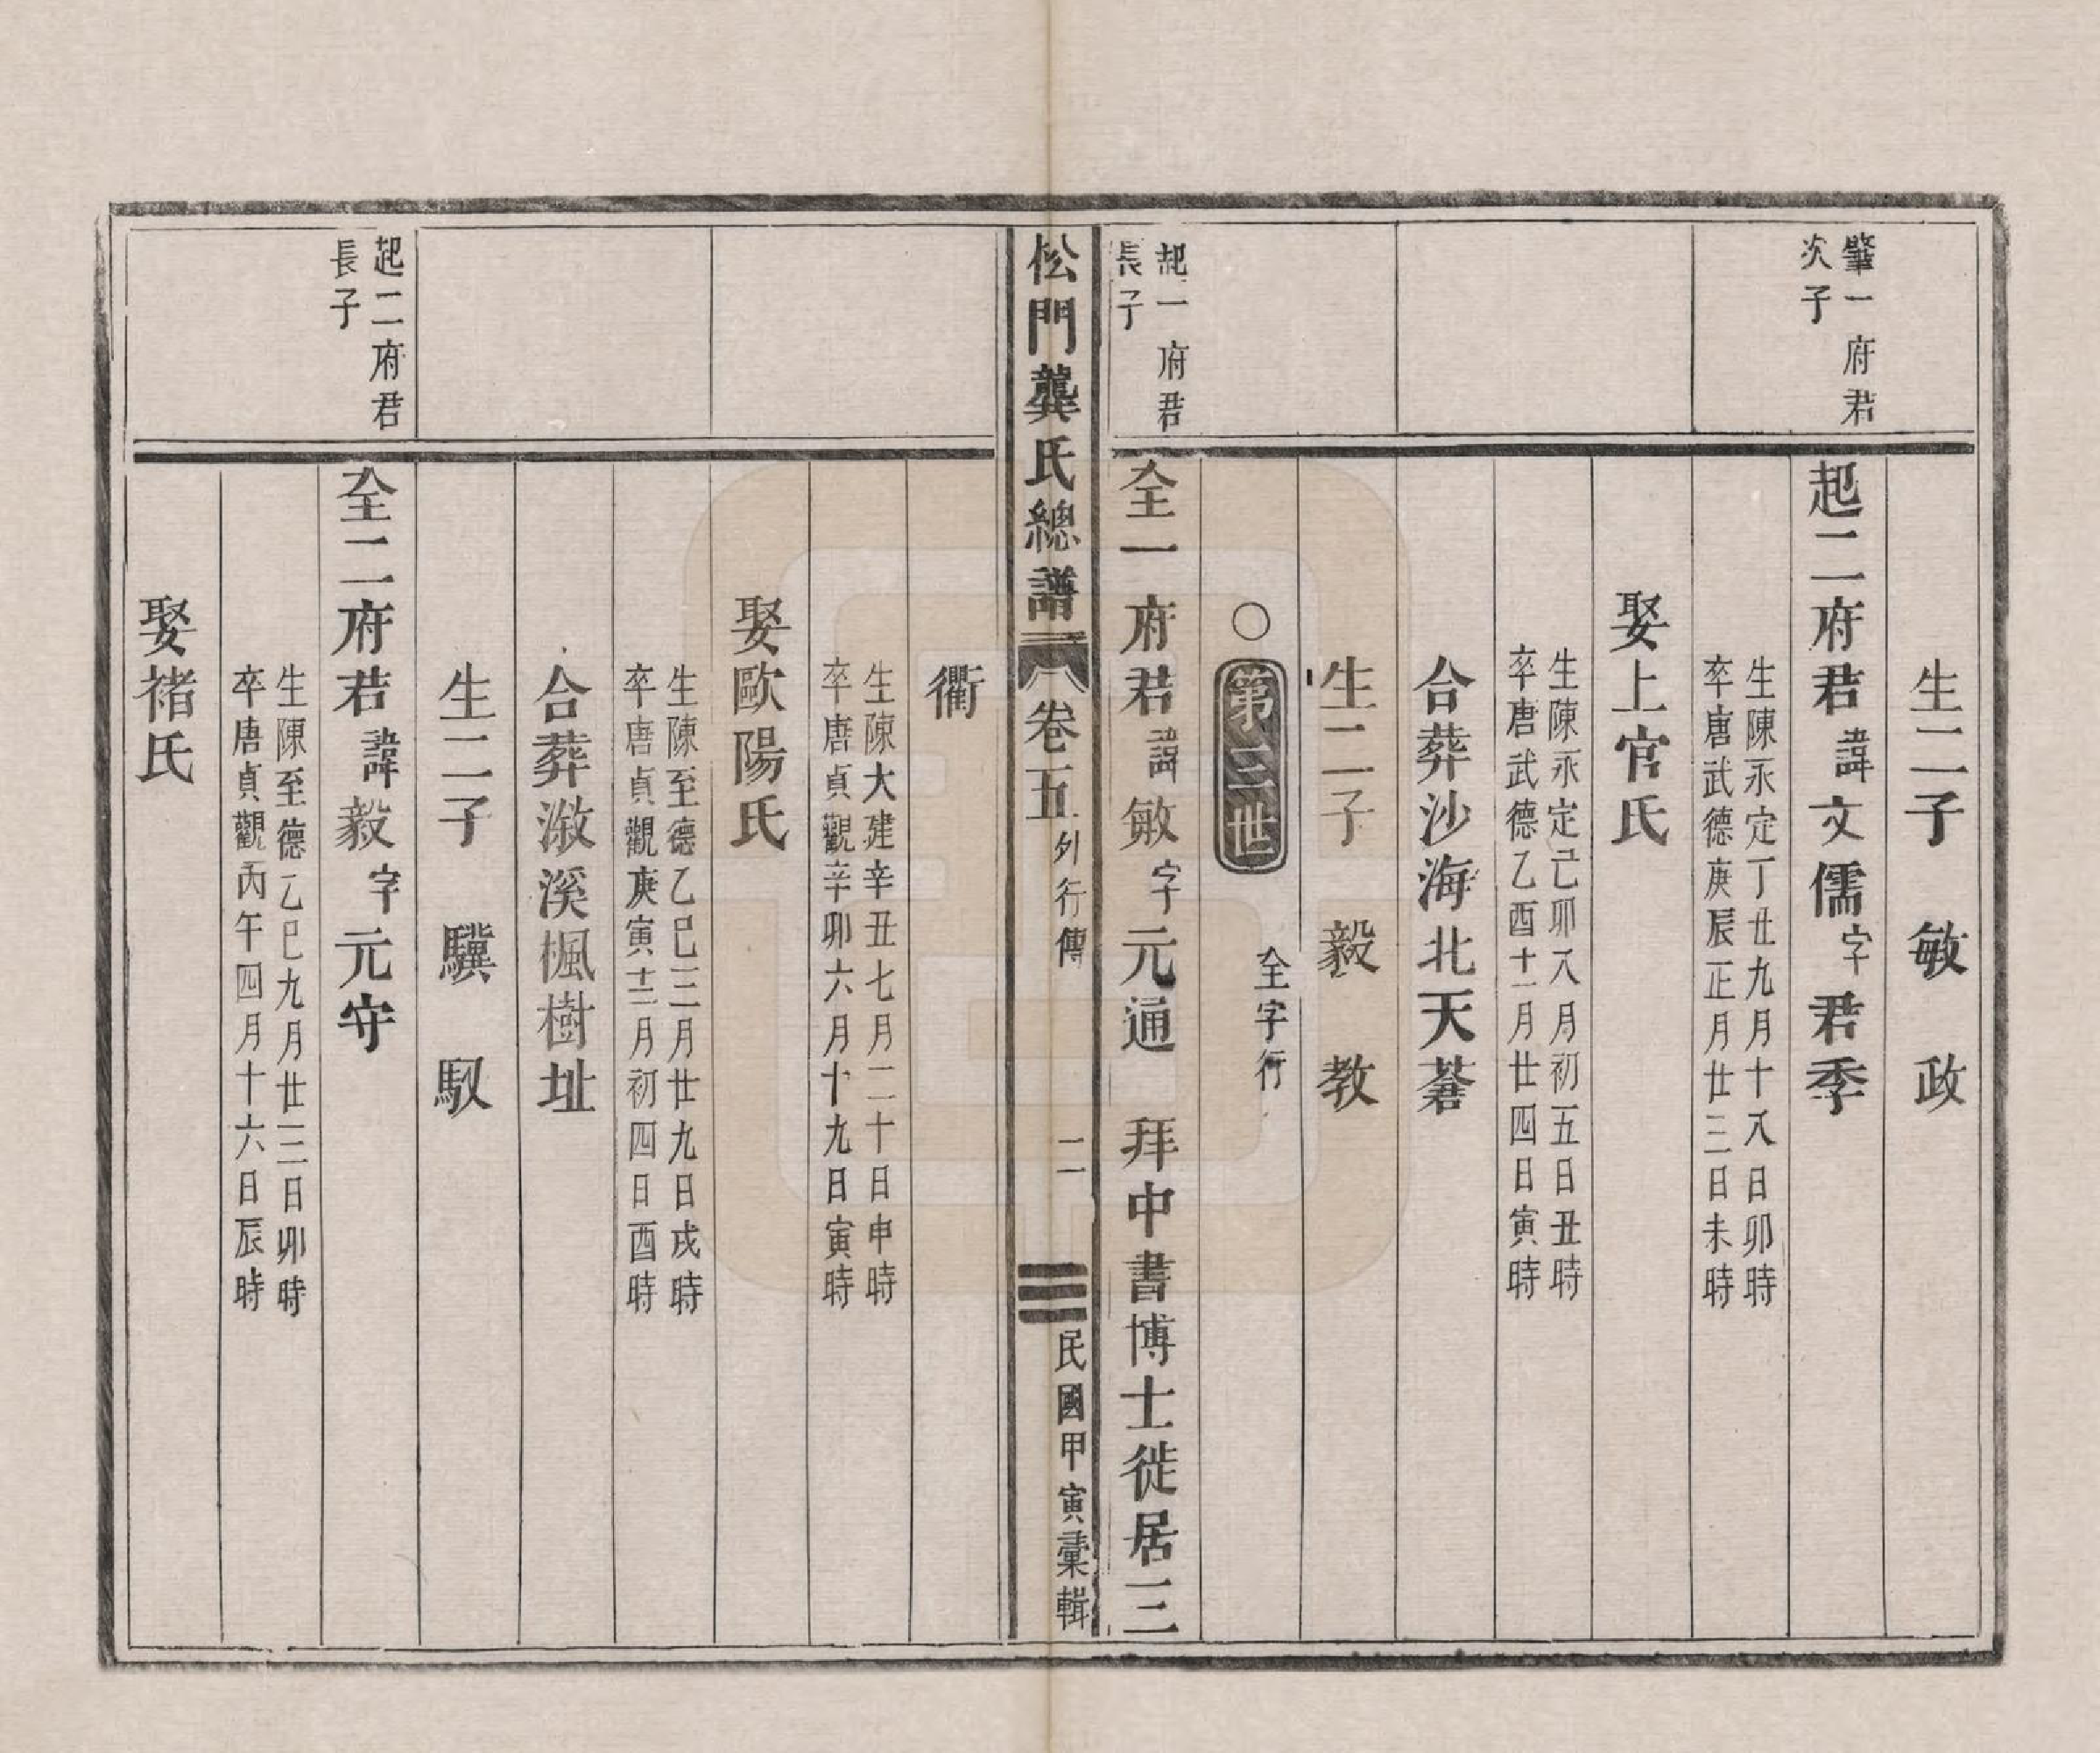 生二子　敏　政
肇一府君
次子
起二府君諱文儒字君季
生陳永定丁丑九月十八日卯時
卒唐武德庚辰正月廿三日未時
娶上官氏
生陳永定己卯八月初五日丑時
卒唐武德乙酉十一月廿四日寅時
合葬沙海北天菴
生二子　毅　教
○第三世　仝字行
起一府君
長子
仝一府君諱敏字元通　拜中書博士徙居三
松門龔氏總譜　卷五　外行傳　二　民國甲寅彙輯
衢
生陳大建辛丑七月二十日申時
卒唐貞觀辛卯六月十九日寅時
娶歐陽氏
生陳至德乙巳三月廿九日戌時
卒唐貞觀庚寅十二月初四日酉時
合葬漵溪楓樹址
生二子　驥　馭
起二府君
長子
仝二府君諱毅字元守
生陳至德乙巳九月廿三日卯時
卒唐貞觀丙午四月十六日辰時
娶褚氏